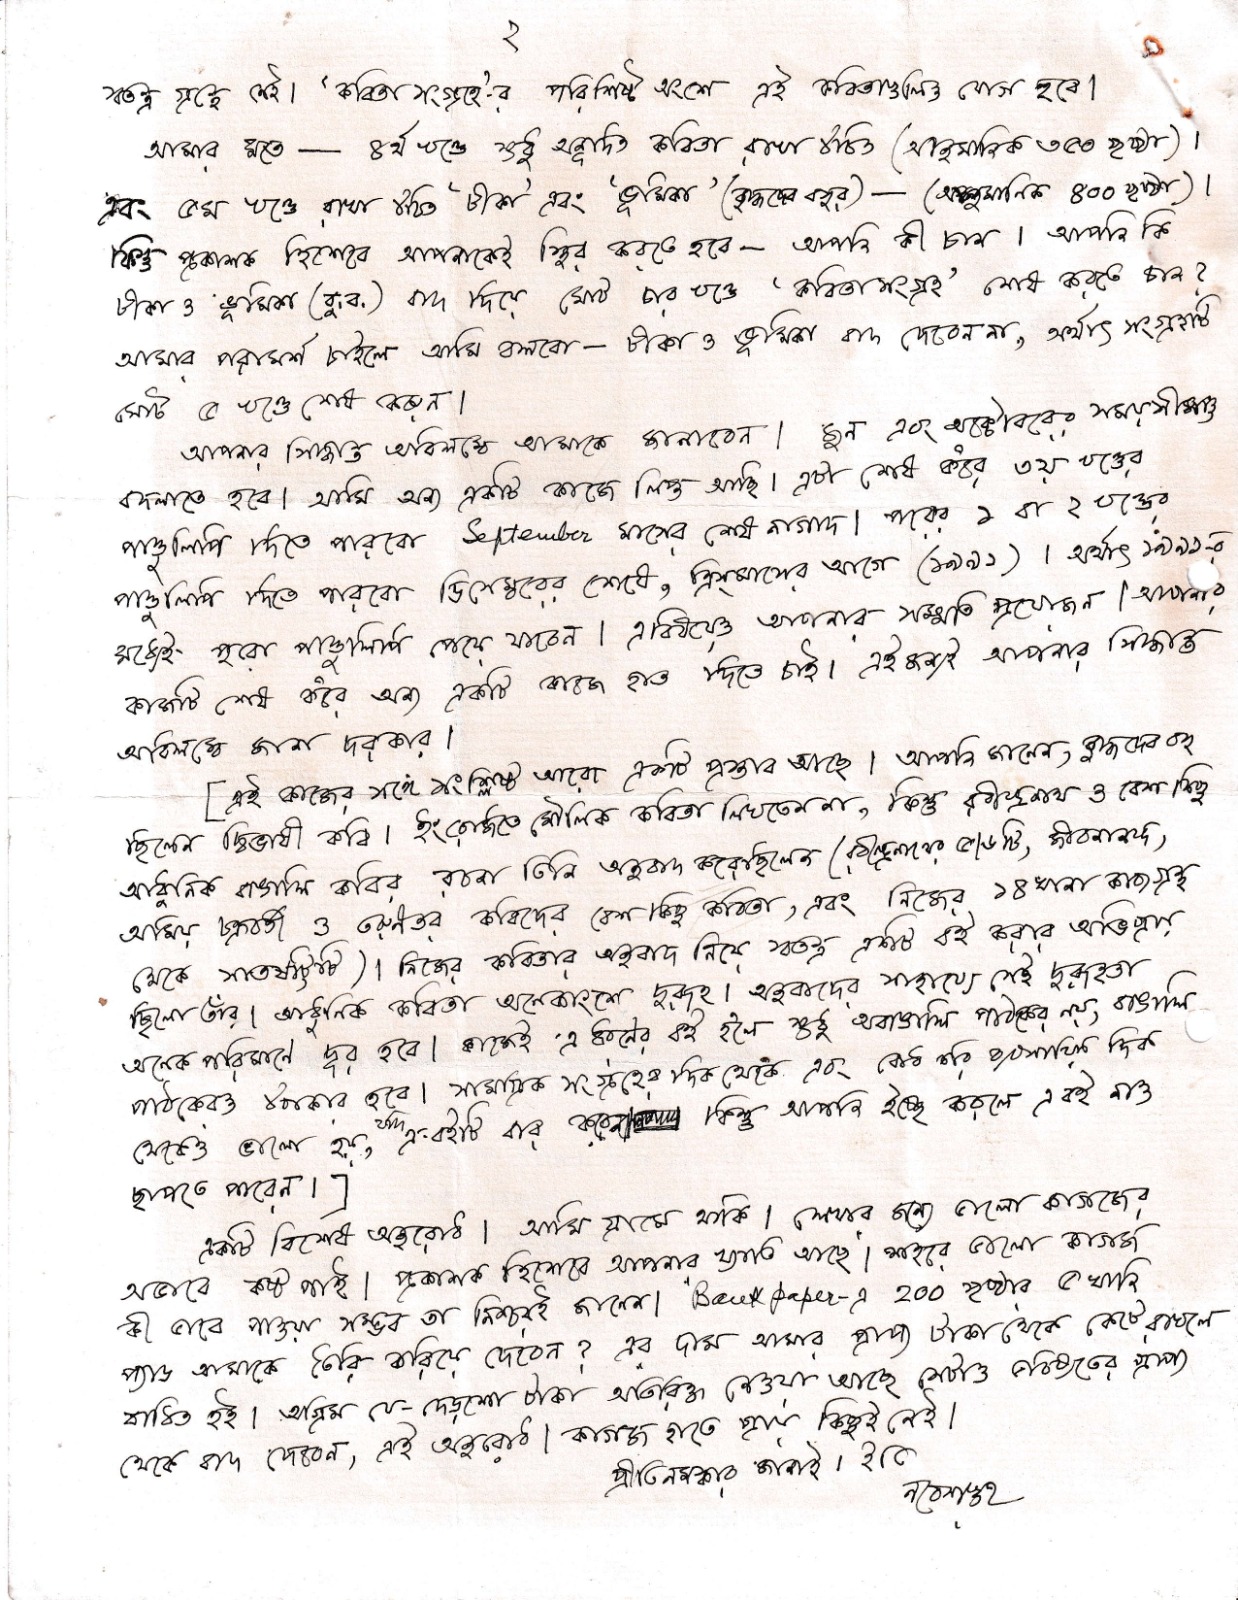 ২
স্বতন্ত্র গ্রন্থে নেই। ‘কবিতাসংগ্রহে’-র পরিশিষ্ট অংশে এই কবিতাগুলিও যোগ হবে।
আমার মতে — ৪র্থ খণ্ডে শুধু অনূদিত কবিতা রাখা উচিত (আনুমানিক ৩৫০ পৃষ্ঠা)।
এবং ৫ম খণ্ডে রাখা উচিত ‘টীকা’ এবং ‘ভূমিকা’ (বুদ্ধদেব বসুর) — (আনুমানিক ৪০০ পৃষ্ঠা)।
কিন্তু প্রকাশক হিশেবে আপনাকেই স্থির করতে হবে — আপনি কী চান। আপনি কি
টীকা ও ভূমিকা (বু.ব.) বাদ দিয়ে মোট চার খণ্ডে ‘কবিতাসংগ্রহ’ শেষ করতে চান?
আমার পরামর্শ চাইলে আমি বলবো — টীকা ও ভূমিকা বাদ দেবেন না, অর্থাৎ সংগ্রহটি
মোট ৫ খণ্ডে শেষ করুন।
আপনার সিদ্ধান্ত অবিলম্বে আমাকে জানাবেন। জুন এবং অক্টোবরের সময়সীমাও
বদলাতে হবে। আমি অন্য একটি কাজে লিপ্ত আছি। এটা শেষ ক'রে ৩য় খণ্ডের
পাণ্ডুলিপি দিতে পারবো September মাসের শেষ নাগাদ। পরের ১ বা ২ খণ্ডের
পাণ্ডুলিপি দিতে পারবো ডিসেম্বরের শেষে, ক্রিস্‌মাসের আগে (১৯৯১)। অর্থাৎ ১৯৯১-র
মধ্যেই পুরো পাণ্ডুলিপি পেয়ে যাবেন। এবিষয়েও আপনার সম্মতি প্রয়োজন। আপনার
কাজটি শেষ ক'রে অন্য একটি কাজে হাত দিতে চাই। এইজন্যই আপনার সিদ্ধান্ত
অবিলম্বে জানা দরকার।
[এই কাজের সঙ্গে সংশ্লিষ্ট আরো একটি প্রস্তাব আছে। আপনি জানেন, বুদ্ধদেব বসু
ছিলেন দ্বিভাষী কবি। ইংরেজিতে মৌলিক কবিতা লিখতেন না, কিন্তু রবীন্দ্রনাথ ও বেশ কিছু
আধুনিক বাঙালি কবির রচনা তিনি অনুবাদ করেছিলেন (রবীন্দ্রনাথের ৫/৬টি, জীবনানন্দ,
অমিয় চক্রবর্তী ও তরুণতর কবিদের বেশ কিছু কবিতা, এবং নিজের ১৪খানা কাব্যগ্রন্থ
থেকে সাতষট্টিটি)। নিজের কবিতার অনুবাদ নিয়ে স্বতন্ত্র একটি বই করার অভিপ্রায়
ছিলো তাঁর। আধুনিক কবিতা অনেকাংশে দুরূহ। অনুবাদের সাহায্যে সেই দুরূহতা
অনেক পরিমানে দূর হবে। কাজেই এ ধরনের বই হ'লে শুধু অবাঙালি পাঠকের নয়, বাঙালি
পাঠকেরও উপকার হবে। সামগ্রিক সংগ্রহের দিক থেকে এবং বোধ করি ব্যবসায়িক দিক
থেকেও ভালো হয়, যদি এ-বইটি বার করেন। কিন্তু আপনি ইচ্ছে করলে এ বই নাও
ছাপতে পারেন।]
একটি বিশেষ অনুরোধ। আমি গ্রামে থাকি। লেখার জন্যে ভালো কাগজের
অভাবে কষ্ট পাই। প্রকাশক হিশেবে আপনার খ্যাতি আছে। শহরে ভালো কাগজ
কী ভাবে পাওয়া সম্ভব তা নিশ্চয়ই জানেন। Bank paper-এ 200 পৃষ্ঠার ৫ খানি
প্যাড আমাকে তৈরি করিয়ে দেবেন? এর দাম আমার প্রাপ্য টাকা থেকে কেটে রাখলে
বাধিত হই। অগ্রিম যে-দেড়শো টাকা অতিরিক্ত নেওয়া আছে সেটাও ভবিষ্যতের প্রাপ্য
থেকে বাদ দেবেন, এই অনুরোধ। কাগজ হাতে প্রায় কিছুই নেই।
প্রীতিনমস্কার জানাই। ইতি
নরেশ গুহ